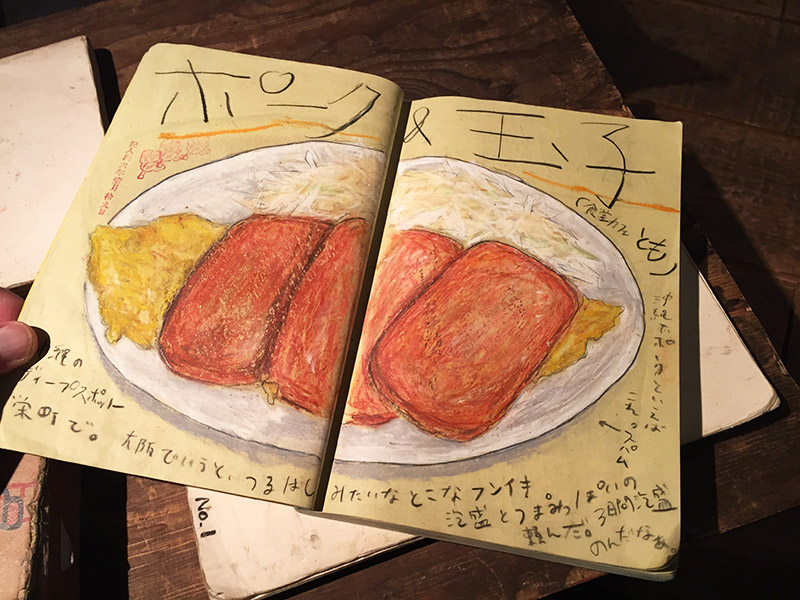 ポーク & 玉子
(食堂カフェ
とも)
沖縄でポークといえば
これ。スパム
那覇の
ディープスポット
栄町で。
大阪でいうと、つるはしみたいなとこなフンイキ
泡盛とつまみ
頼んだ。
3日間泡盛
のんだなぁ。
No-1